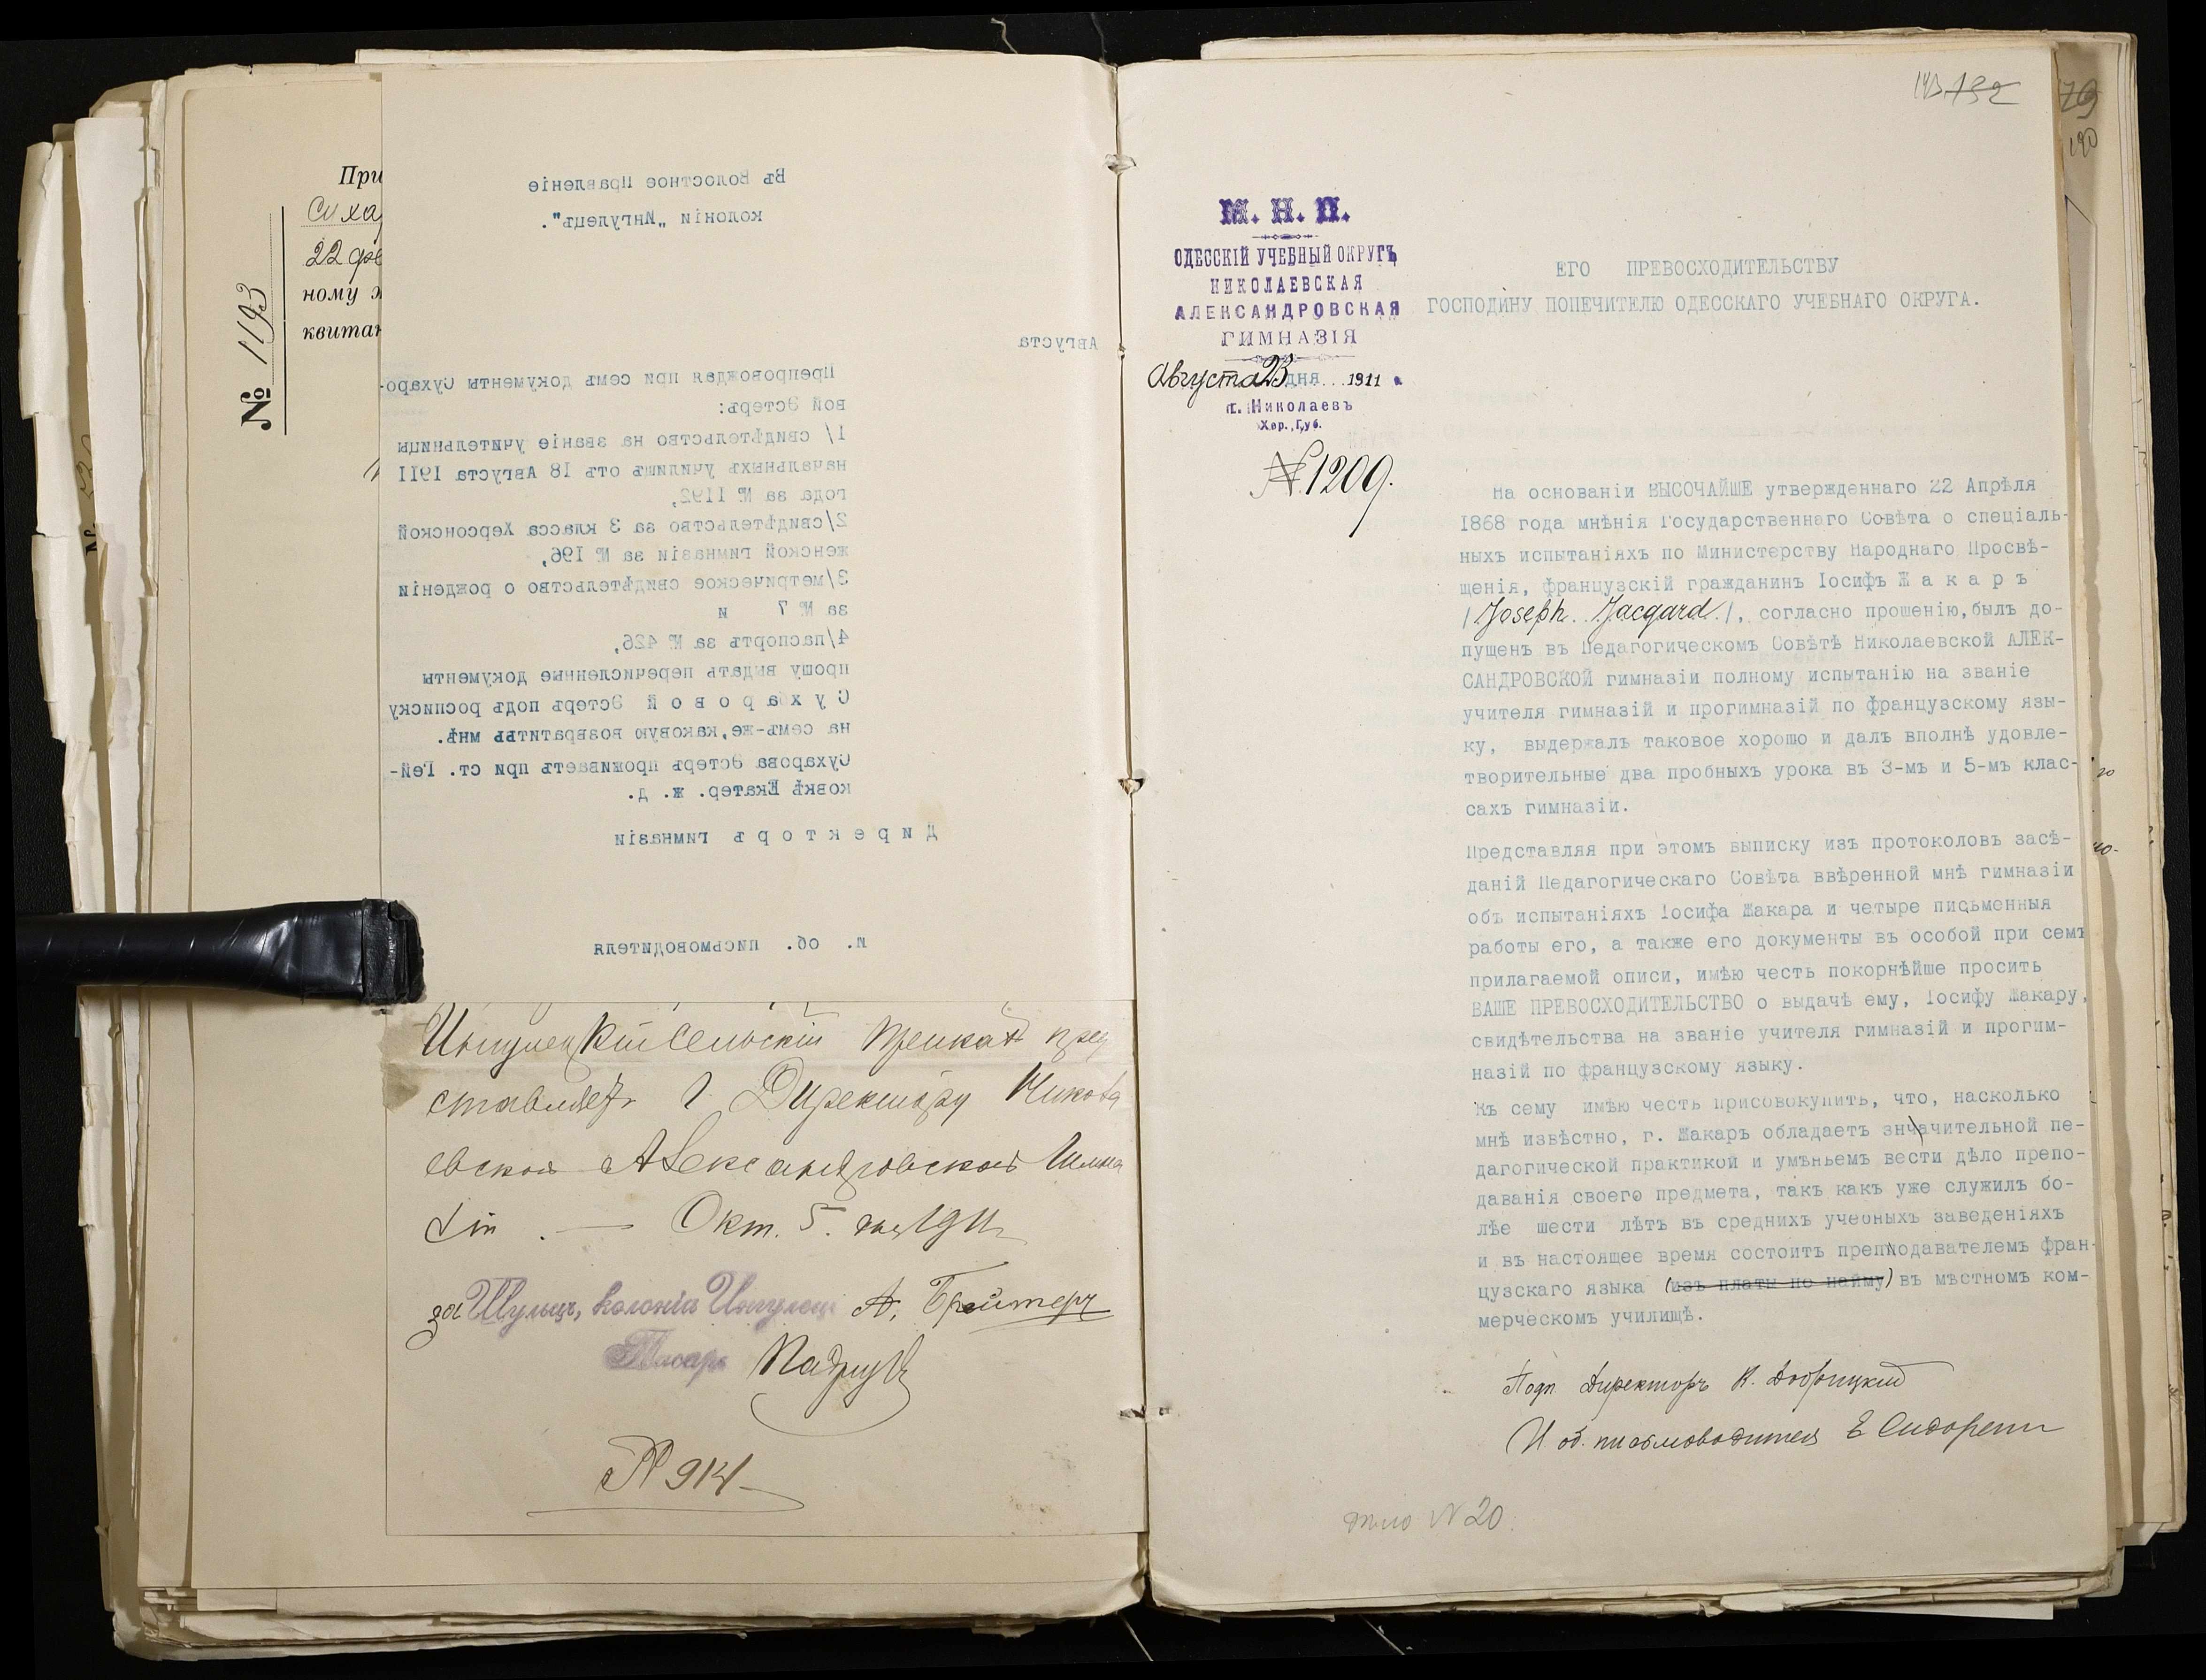 При
Суха
22 фе
ному
квитан
№ 1193
Въ Волостное Правленіе
колоніи „Ингулецъ".
Августа
Препровождая при семъ документы Сухаро-
вой Эстеръ:
1/ свидѣтельство на званіе учительницы
начальныхъ училищъ отъ 18 Августа 1911
года за № 1192,
2/свидѣтельство за 3 класса Херсонской
женской гимназіи за № 196,
3/метрическое свидѣтельство о рожденіи
за № 7 и
4/паспортъ за № 426,
прошу выдать перечисленные документы
С у х а р о в о й Эстеръ подъ росписку
на семъ-же,каковую возвратить мнѣ.
Сухарова Эстеръ проживаетъ при ст. Гей-
ковкѣ Екатер. ж. д.
Д и р е к т о р ъ гимназіи
И. об. письмоводителя
Ингулецкій Сельскій Приказъ пред
ставляетъ Г. Директору Никола
евской Александровской Гимна
зіи. — Окт. 5 дня 1911
за Шульцъ, колоніи Ингулецъ А. Брейтеръ
Писарь
№ 914
143 132
79
190
М. Н. П.
ОДЕССКІЙ УЧЕБНЫЙ ОКРУГЪ
НИКОЛАЕВСКАЯ
АЛЕКСАНДРОВСКАЯ
ГИМНАЗІЯ
Августа 23 дня 1911
г. Николаевъ
Хер. Губ.
№ 1209.
ЕГО ПРЕВОСХОДИТЕЛЬСТВУ
ГОСПОДИНУ ПОПЕЧИТЕЛЮ ОДЕССКАГО УЧЕБНАГО ОКРУГА.
На основаніи ВЫСОЧАЙШЕ утвержденнаго 22 Апрѣля
1868 года мнѣнія Государственнаго Совѣта о спеціаль-
ныхъ испытаніяхъ по Министерству Народнаго Просвѣ-
щенія, французскій гражданинъ Іосифъ Ж а к а р ъ
/ Joseph Jacquard /, согласно прошенію,былъ до-
пущенъ въ Педагогическомъ Совѣтѣ Николаевской АЛЕК-
САНДРОВСКОЙ гимназіи полному испытанію на званіе
учителя гимназій и прогимназій по французскому язы-
ку, выдержалъ таковое хорошо и далъ вполнѣ удовле-
творительные два пробныхъ урока въ 3-мъ и 5-мъ клас-
сахъ гимназіи.
Представляя при этомъ выписку изъ протоколовъ засѣ-
даній Педагогическаго Совѣта ввѣренной мнѣ гимназіи
объ испытаніяхъ Іосифа Жакара и четыре письменныя
работы его, а также его документы въ особой при семъ
прилагаемой описи, имѣю честь покорнѣйше просить
ВАШЕ ПРЕВОСХОДИТЕЛЬСТВО о выдачѣ ему, Іосифу Жакару,
свидѣтельства на званіе учителя гимназій и прогим-
назій по французскому языку.
Къ сему имѣю честь присовокупить, что, насколько
мнѣ извѣстно, г. Жакаръ обладаетъ значительной пе-
дагогической практикой и умѣньемъ вести дѣло препо-
даванія своего предмета, такъ какъ уже служилъ бо-
лѣе шести лѣтъ въ среднихъ учебныхъ заведеніяхъ
и въ настоящее время состоитъ преподавателемъ фран-
цузскаго языка (изъ платы по найму) въ мѣстномъ ком-
мерческомъ училищѣ.
Подп. Директоръ К. Добрицкій
И об. письмоводителя Е Сидорен
дѣло № 20.